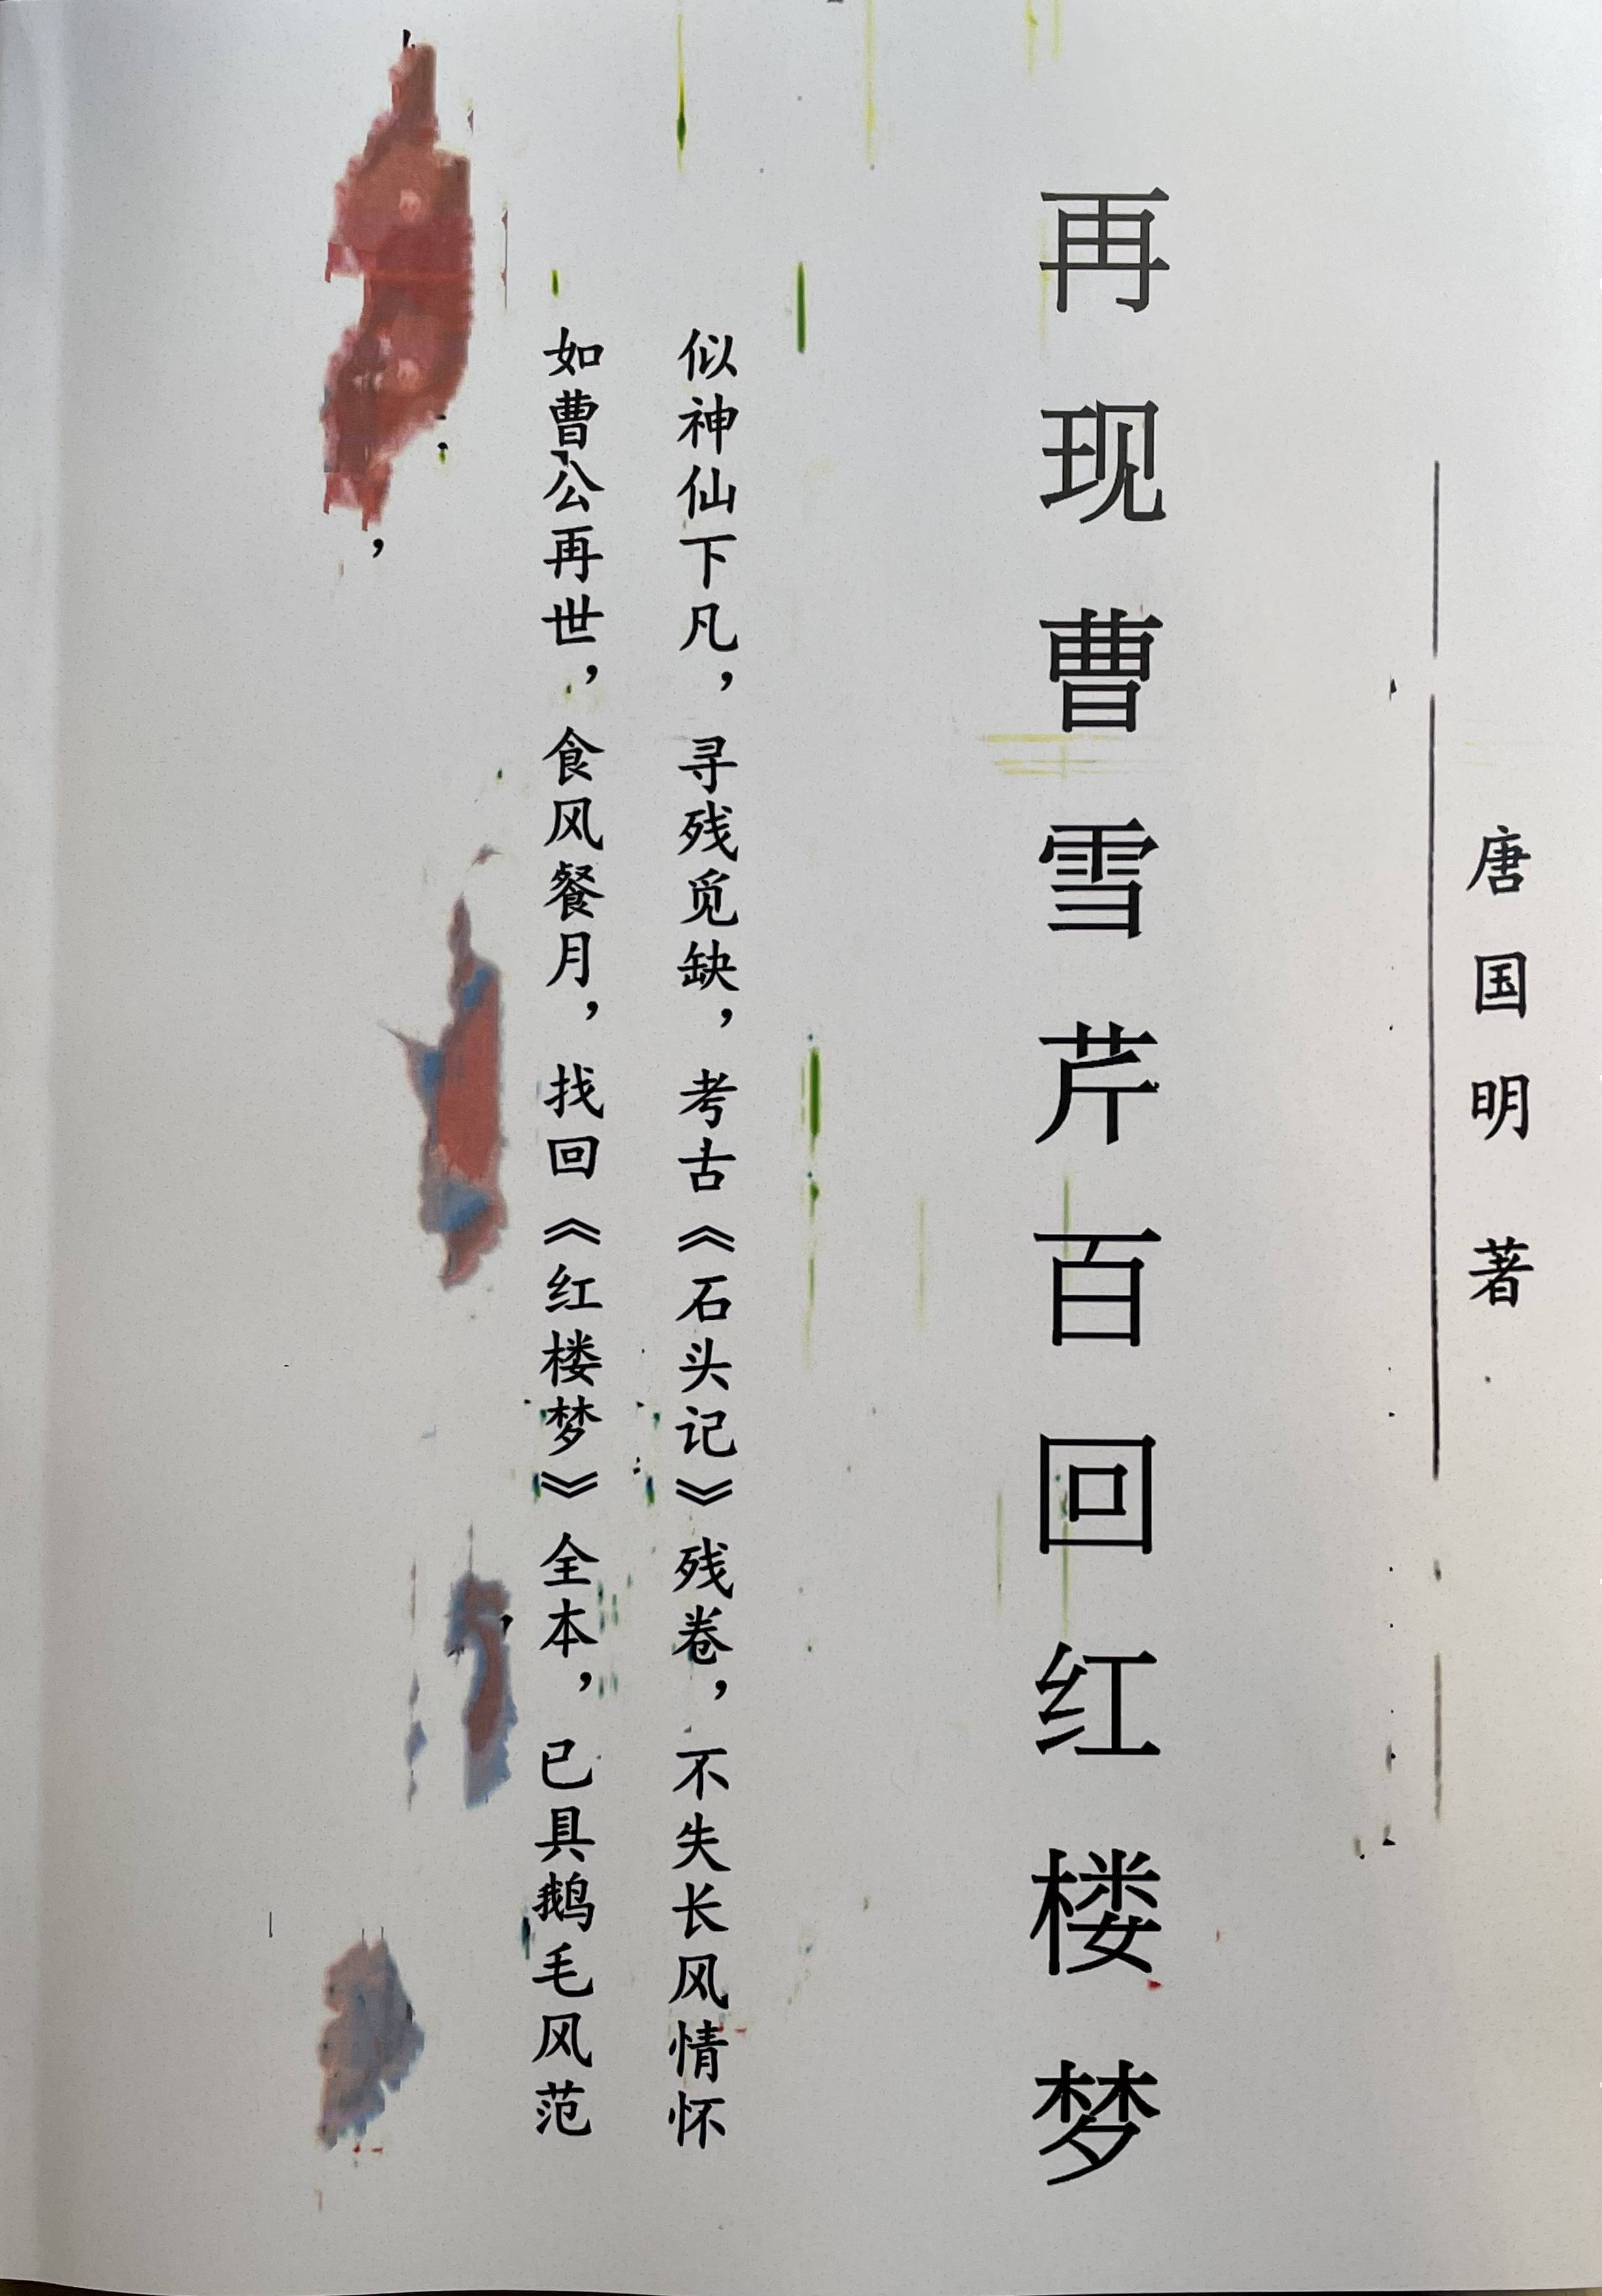 唐国明 著
再现曹雪芹百回红楼梦
似神仙下凡，寻残觅缺，考古《石头记》残卷，不失长风情怀
如曹公再世，食风餐月，找回《红楼梦》全本，已具鹅毛风范